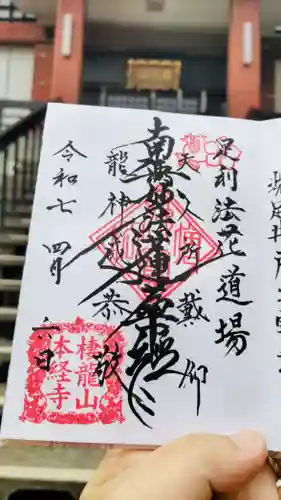 足利法花道場
天人所戴仰
南無妙法蓮華経
龍神咸恭敬
令和七 四月 日
棲龍山
本経寺